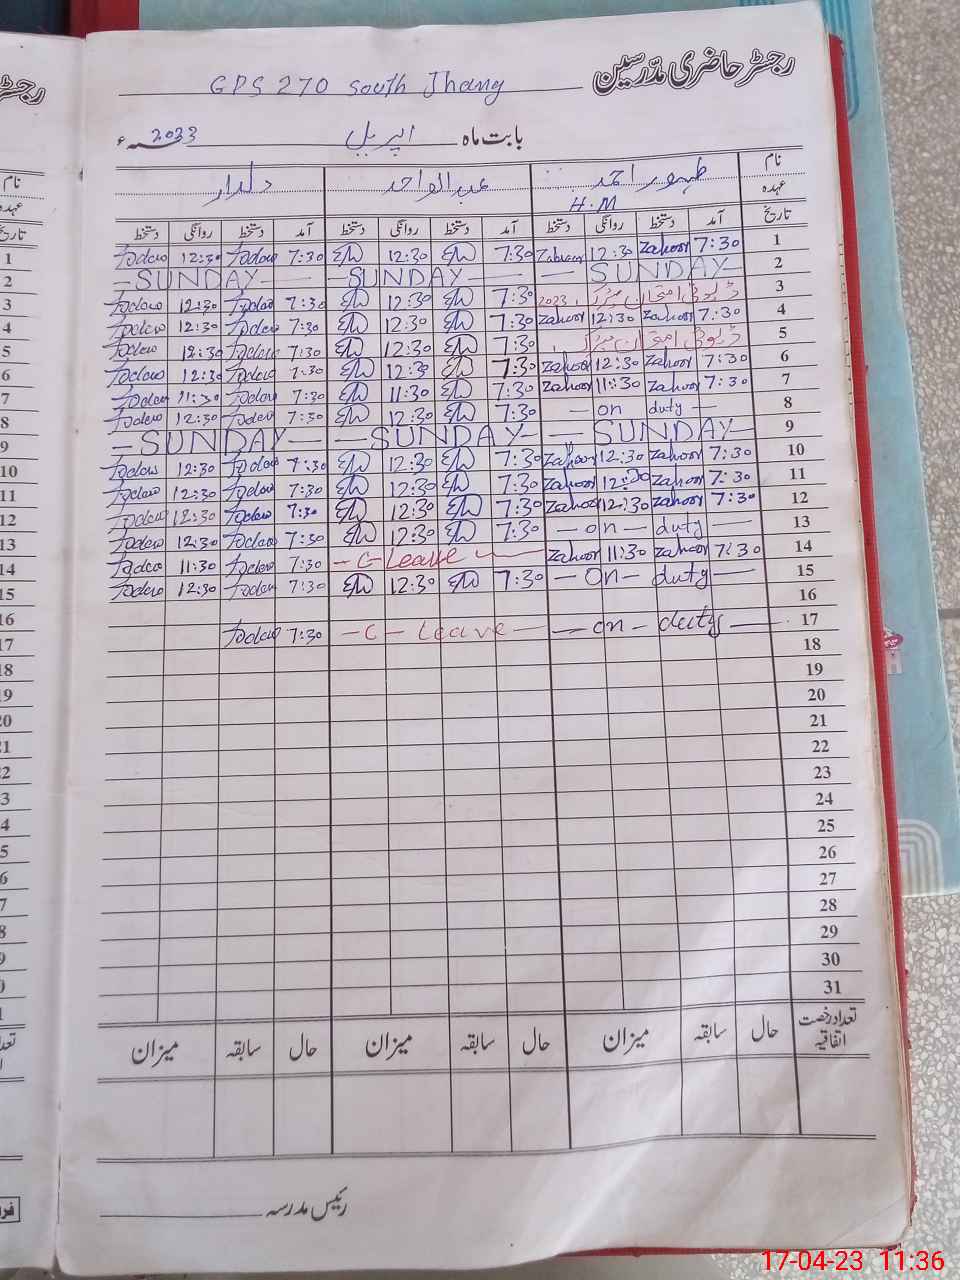 رجسٹر حاضری مدرسین
GPS 270 South Jhang
بابت ماہ اپریل 2023ء
نام ظہور احمد عبدالواحد دلدار
عہدہ H.M
تاریخ آمد دستخط روانگی دستخط آمد دستخط روانگی دستخط آمد دستخط روانگی دستخط
1 7:30 Zahoor 12:30 Zahoor 7:30 12:30 7:30 12:30
2 SUNDAY SUNDAY SUNDAY
3 ڈیوٹی امتحان مرکز 2023 7:30 12:30 7:30 12:30
4 7:30 Zahoor 12:30 Zahoor 7:30 12:30 7:30 12:30
5 ڈیوٹی امتحان مرکز 7:30 12:30 7:30 12:30
6 7:30 Zahoor 12:30 Zahoor 7:30 12:30 7:30 12:30
7 7:30 Zahoor 11:30 Zahoor 7:30 11:30 7:30 11:30
8 on duty 7:30 12:30 7:30 12:30
9 SUNDAY SUNDAY SUNDAY
10 7:30 Zahoor 12:30 Zahoor 7:30 12:30 7:30 12:30
11 7:30 Zahoor 12:30 Zahoor 7:30 12:30 7:30 12:30
12 7:30 Zahoor 12:30 Zahoor 7:30 12:30 7:30 12:30
13 on duty 7:30 12:30 7:30 12:30
14 7:30 Zahoor 11:30 Zahoor C-Leave 7:30 11:30
15 on duty 7:30 12:30 7:30 12:30
16
17 on duty C-Leave 7:30
18
19
20
21
22
23
24
25
26
27
28
29
30
31
تعداد رخصت اتفاقیہ حال سابقہ میزان حال سابقہ میزان حال سابقہ میزان
رئیس مدرسہ
17-04-23 11:36